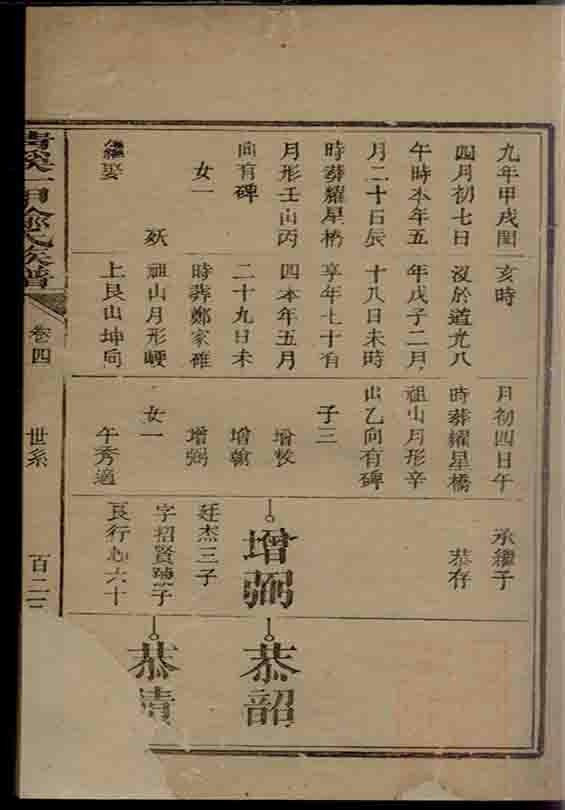 九年甲戌閏
四月初七日
午時本年五
月二十日辰
時葬耀星橋
月形壬山丙
向有碑
女一
妖
繼娶
亥時
沒於道光八
年戊子二月
十八日未時
享年七十有
四本年五月
二十九日未
時葬鄭家碓
祖山月形㟁
上艮山坤向
月初四日午
時葬耀星橋
祖山月形辛
山乙向有碑
子三
增敏
增翰
增弼
女一
午秀適
承繼子
恭存
增弼
廷杰三子
字招賢號子
良行 六十
恭韶
恭
氏族譜
卷四
世系
百二